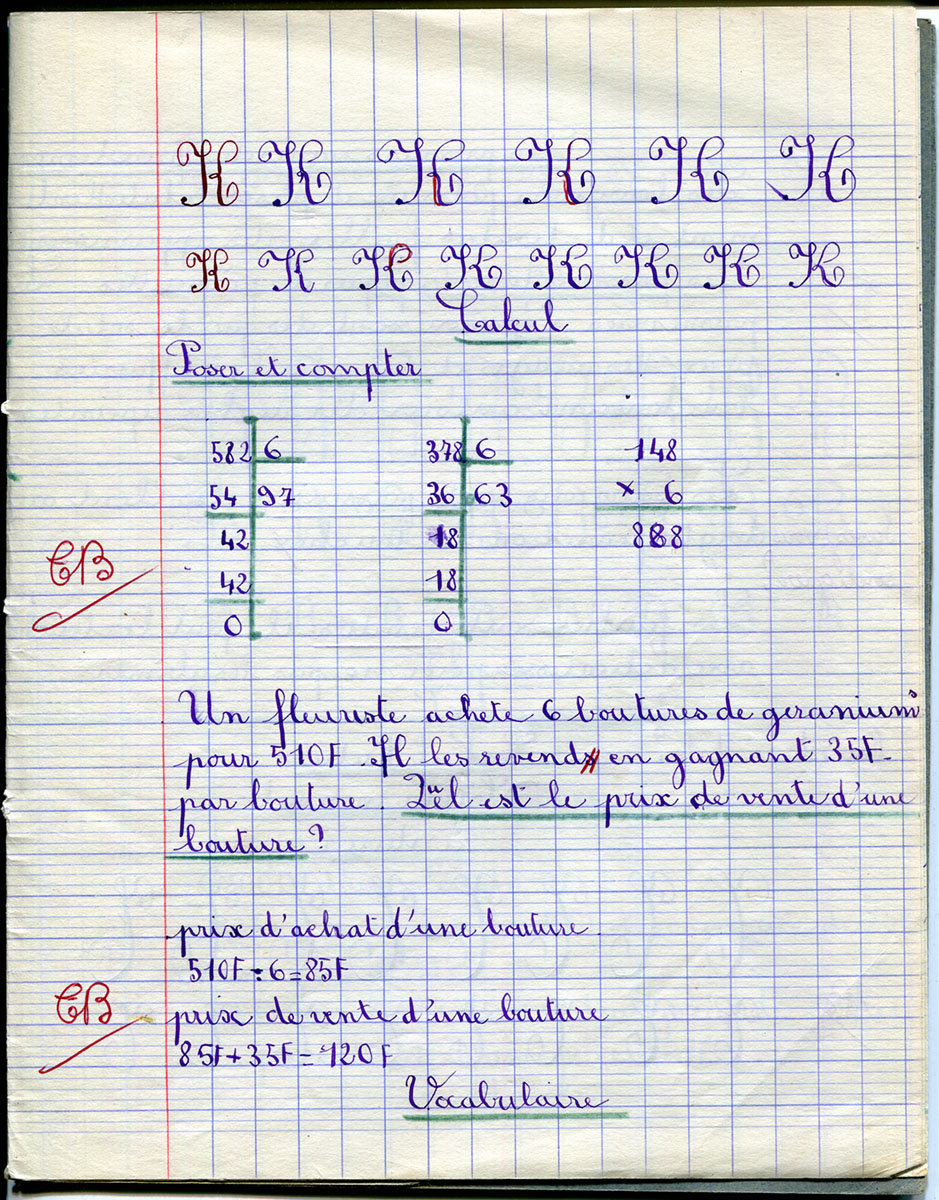 K K K K K K
K K K K K K K K
Calcul
Poser et compter
582 6 378 6 148
54 97 36 63 x 6
42 18 888
TB
42 18
0 0
Un fleuriste achete 6 boutures de geranium
pour 510F. Il les revend en gagnant 35F.
par bouture. Quel est le prix de vente d'une
bouture ?
prix d'achat d'une bouture
510F : 6 = 85F
TB
prix de vente d'une bouture
85F + 35F = 120F
Vocabulaire